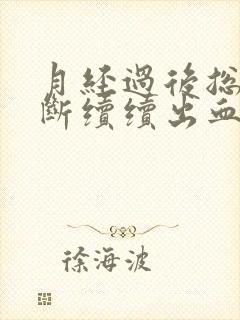 月經過後总
斷續續出血
徐海波